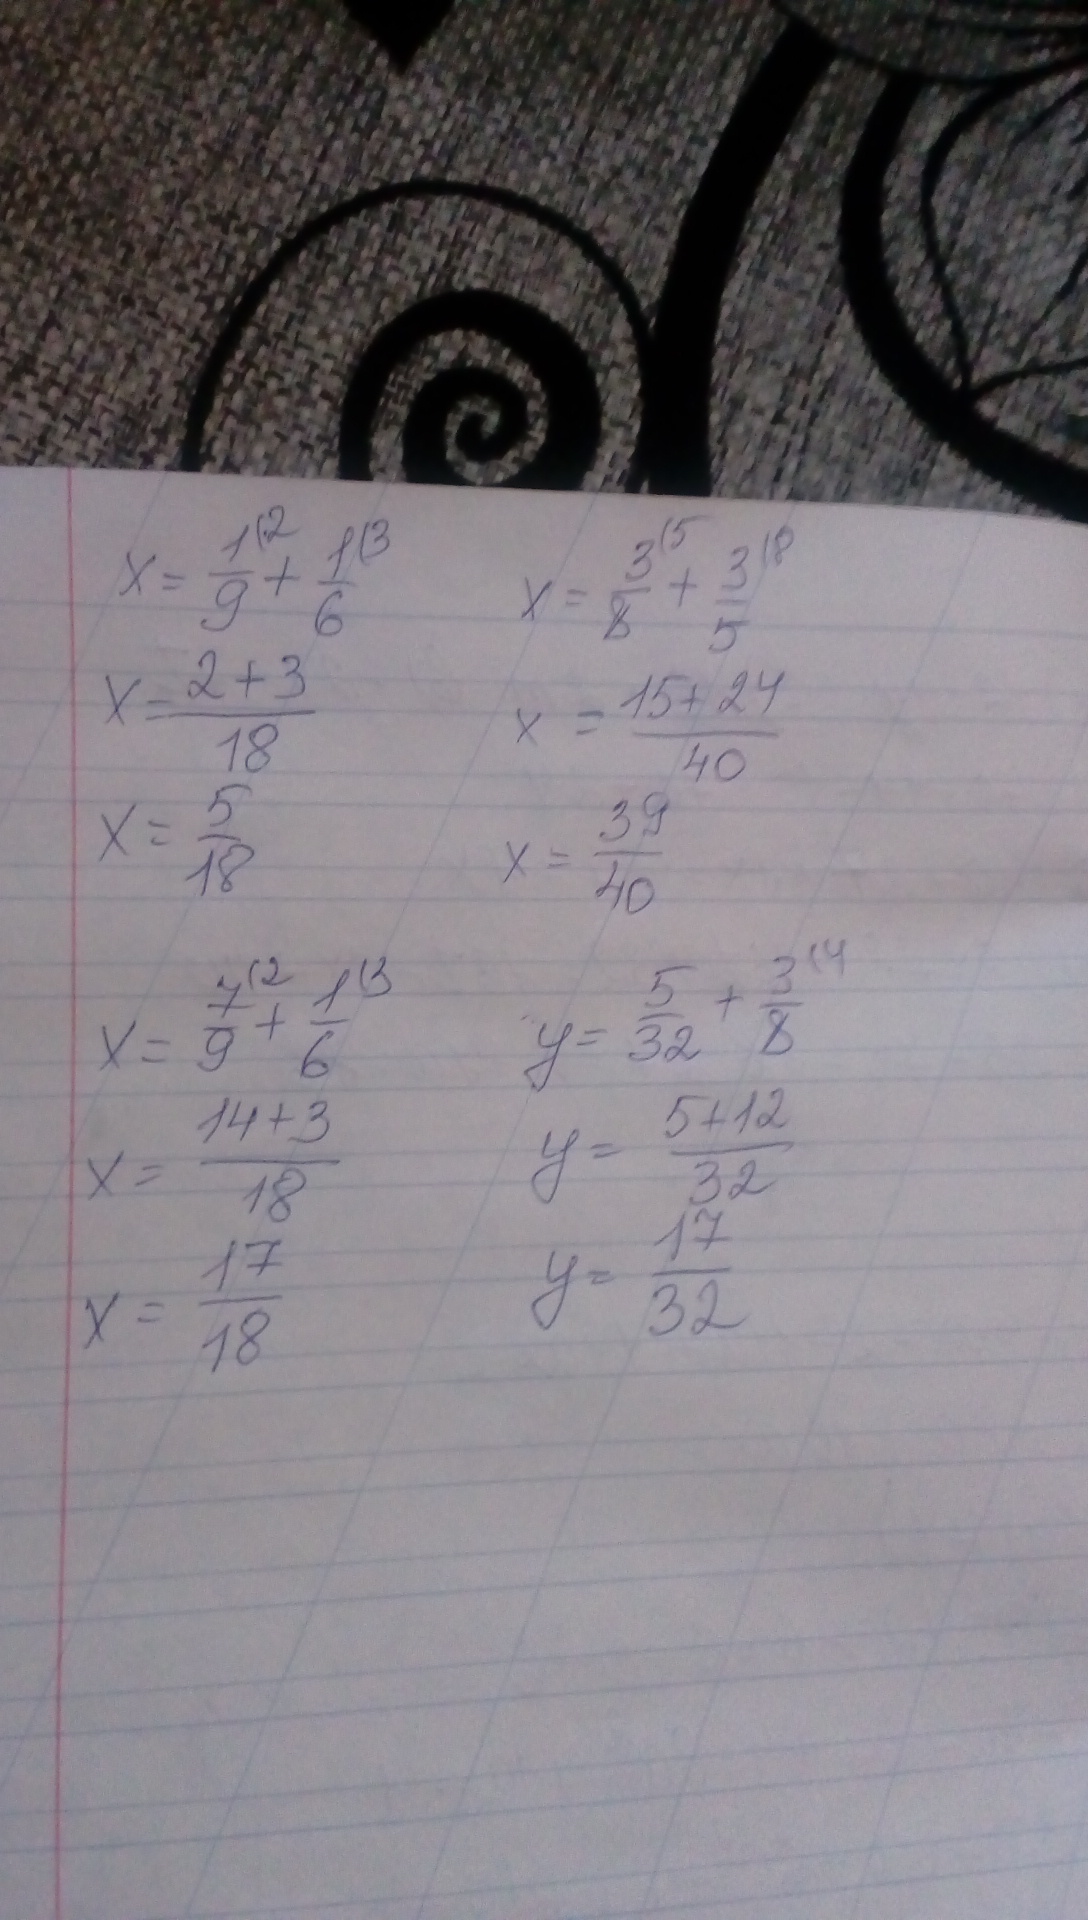 x = 1/9 (2 + 1/6 (3
x = 2+3/18
x = 5/18
x = 3/8 (5 + 3/5 (8
x = 15+24/40
x = 39/40
x = 7/9 (2 + 1/6 (3
x = 14+3/18
x = 17/18
y = 5/32 + 3/8 (4
y = 5+12/32
y = 17/32